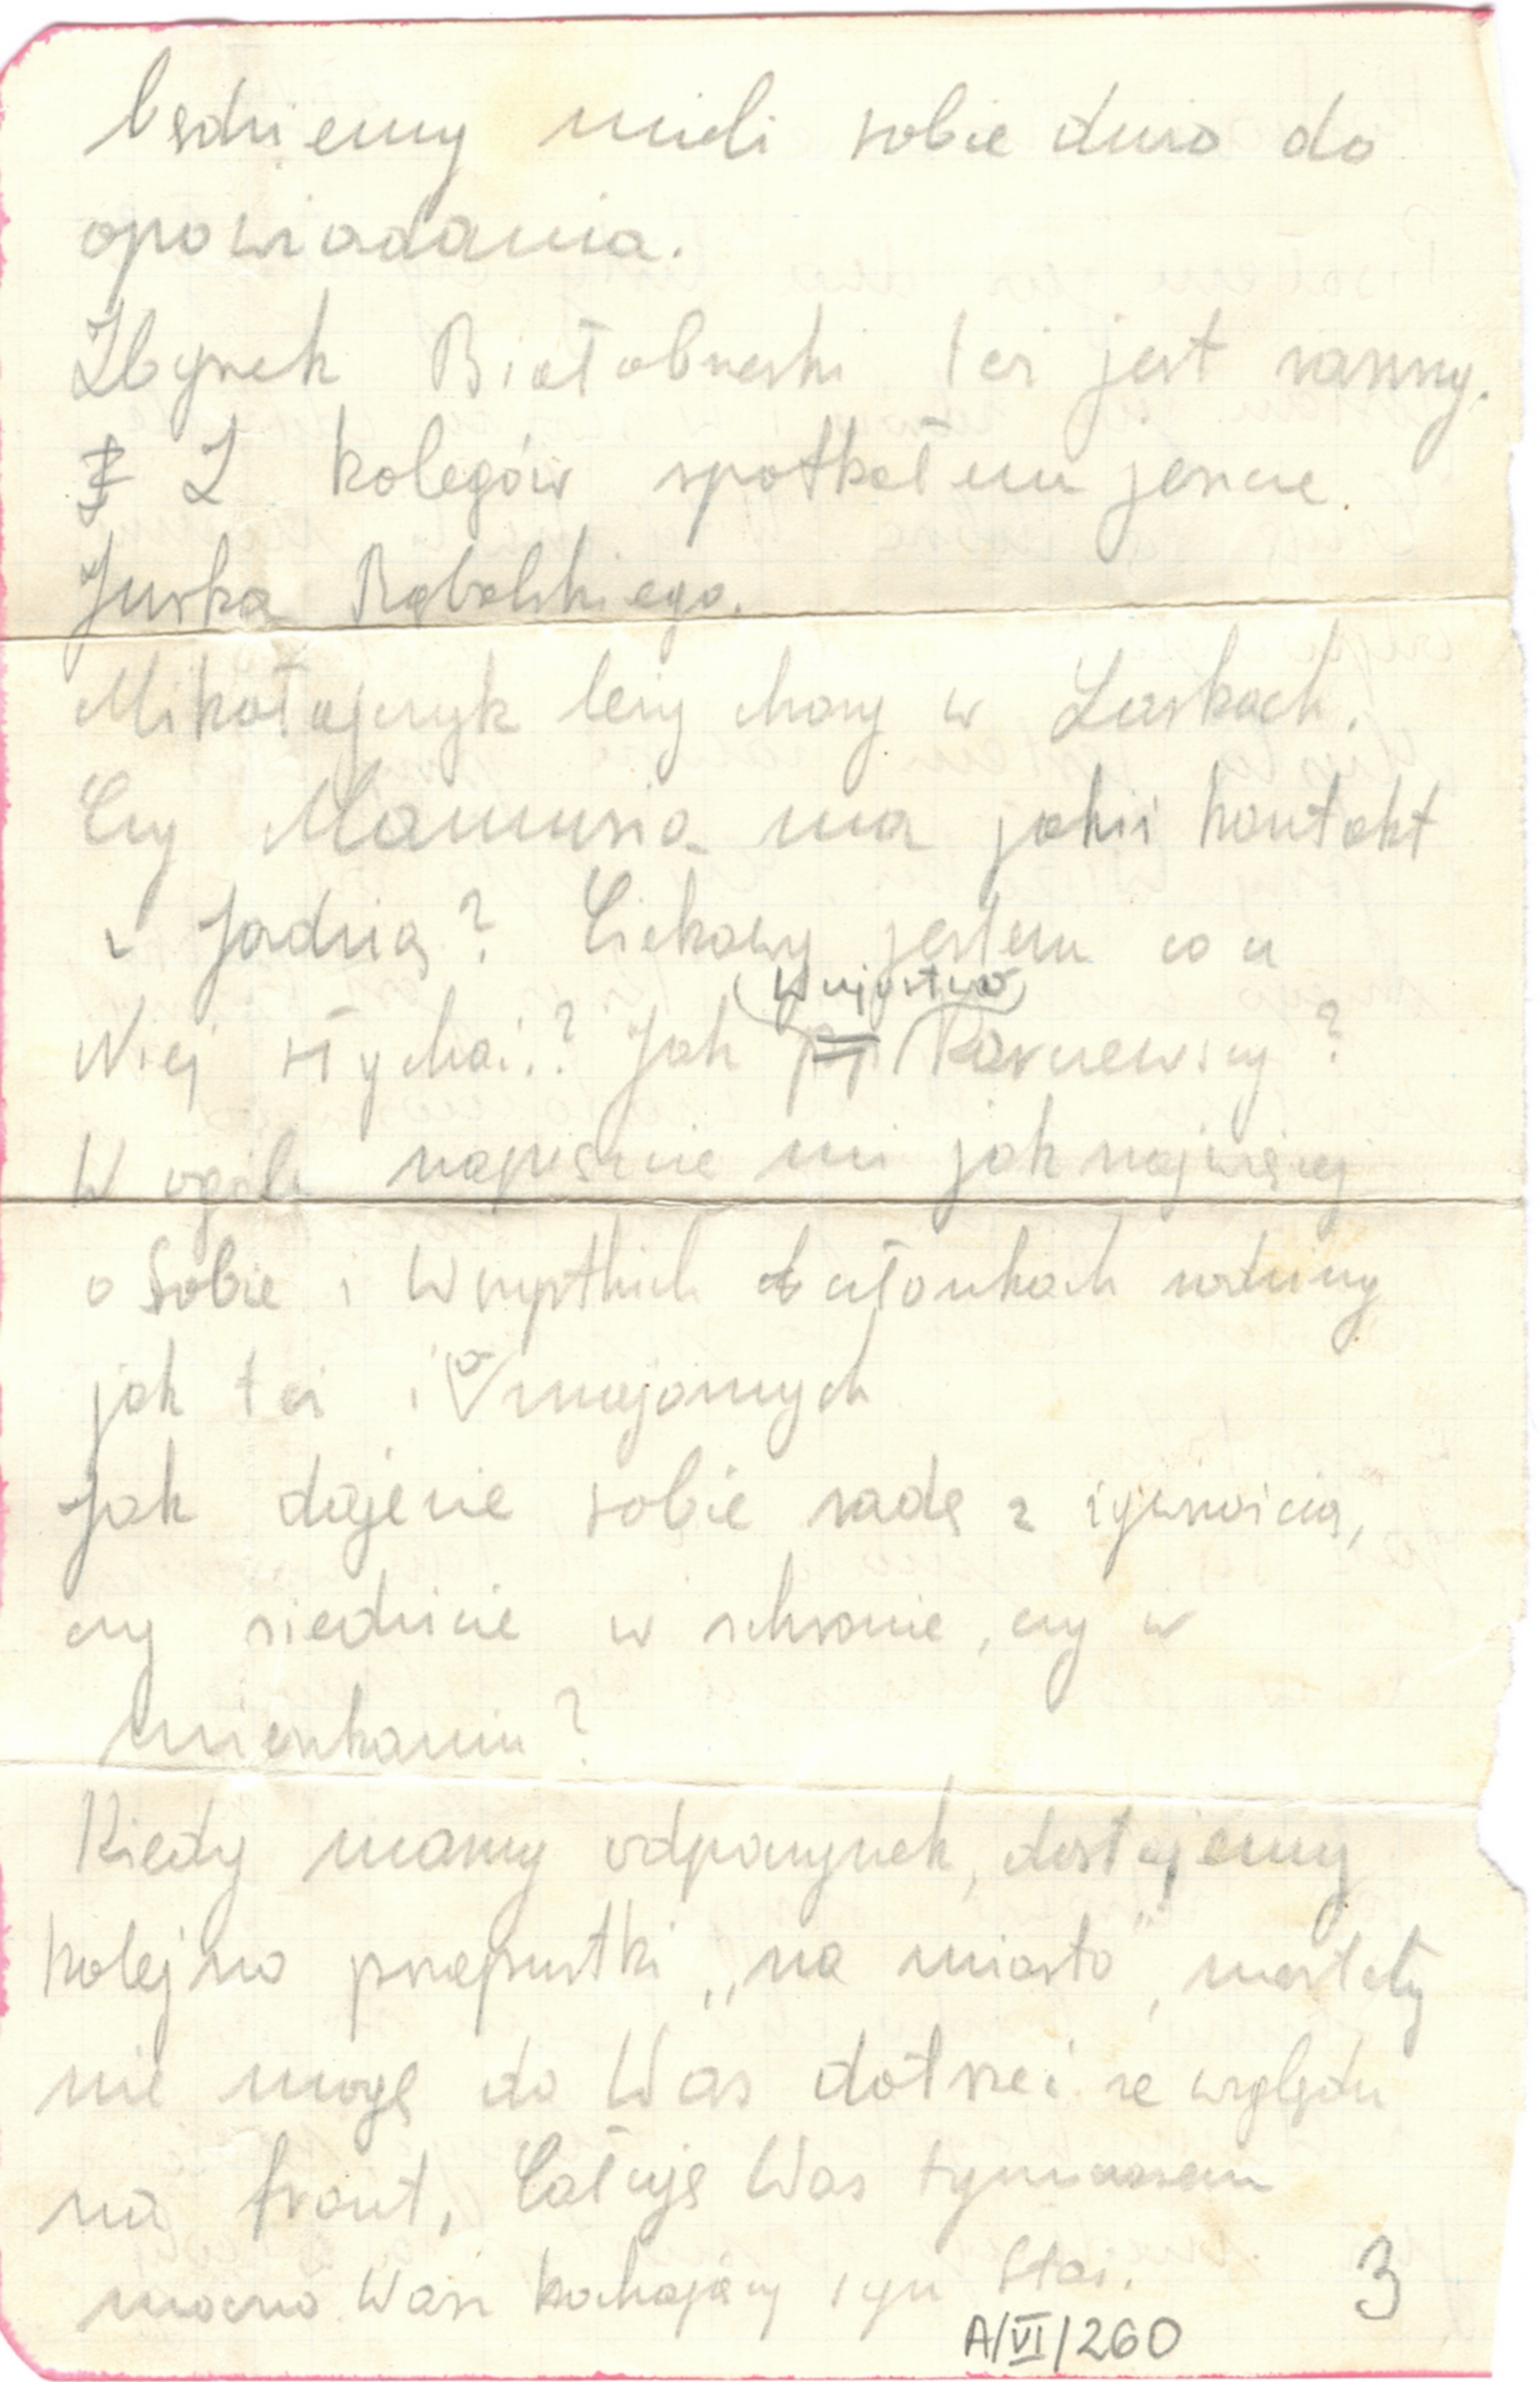 będziemy mieli sobie dużo do
opowiadania.
Zbyszek Białobrzeski też jest ranny.
Z kolegów spotkałem jeszcze
Jurka Rąbalskiego.
Mikołajczyk leży chory w Laskach.
Czy Mamusia ma jakiś kontakt
z Jadzią? Ciekawy jestem co u
Niej słychać? Jak (Wujostwo) Karczewscy?
W ogóle napiszcie mi jak najwięcej
o Sobie i Wszystkich członkach rodziny
jak też i o znajomych
Jak dajecie sobie radę z żywnością,
czy siedzicie w schronie, czy w
mieszkaniu?
Kiedy mamy odpoczynek, dostajemy
kolejno przepustki „na miasto", niestety
nie mogę do Was dotrzeć ze względu
na front. Całuję Was tymczasem
mocno Wasz kochający syn Staś.
3
A/VI/260